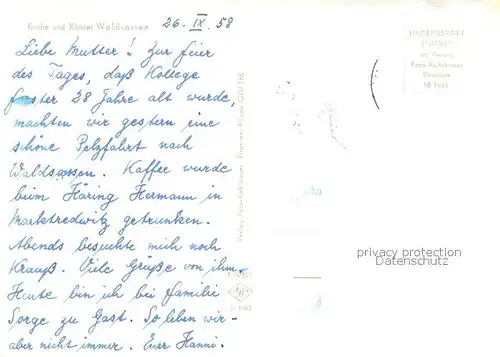 Kirche und Kloster Waldsassen
26. IX. 58
Liebe Mutter! Zur Feier
des Tages, daß Kollege
Forster 28 Jahre alt wurde,
machten wir gestern eine
schöne Pelzfahrt nach
Waldsassen. Kaffee wurde
beim Häring Hermann in
Marktredwitz getrunken.
Abends besuchte mich noch
Krauß. Viele Grüße von ihm.
Heute bin ich bei Familie
Sorge zu Gast. So leben wir -
aber nicht immer. Euer Hanni.
Verlag Foto
privacy protection
Datenschutz